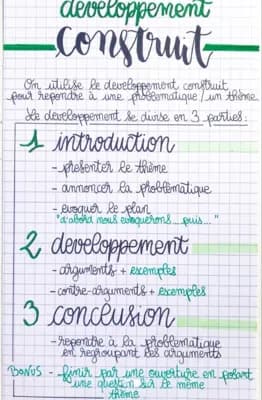 developpement
construit
On utilise le developpement construit
pour repondre à une problematique/un thème
Le developpement se divise en 3 parties:
1 introduction
- presenter le thème
- annoncer la problématique
- evoquer le plan
"d'abord nous evoquerons...puis..."
2 developpement
- arguments + exemples
- contre-arguments + exemples
3 conclusion
- repondre à la problematique
en regroupant les arguments
BONUS - finir par une ouverture en posant
une question sur le même
thème